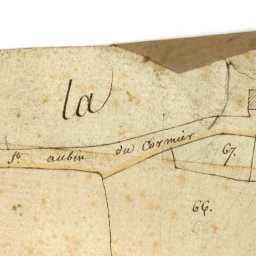 la
St aubin du Cormier
67.
66.